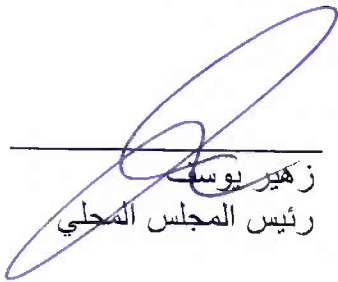 زهير يوسف
رئيس المجلس المحلي